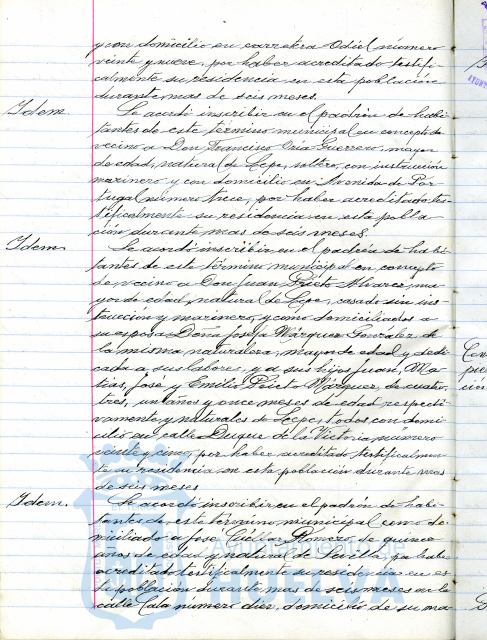 y con domicilio en carretera Odiel número
veinte y nueve, por haber acreditado testifi-
calmente su residencia en esta población
durante mas de seis meses.
Idem. Se acordó inscribir en el padrón de habi-
tantes de este término municipal en concepto de
vecino a Don Francisco Oria Guerrero, mayor
de edad, natural de Lepe, soltero, con instrucción
marinero y con domicilio en Avenida de Por-
tugal numero trece, por haber acreditado tes-
tificalmente su residencia en esta pobla-
ción durante mas de seis meses.
Idem. Se acordó inscribir en el padrón de habi-
tantes de este término municipal en concepto
de vecino a Don Juan Prieto Alvarez, ma-
yor de edad, natural de Lepe, casado sin ins-
trucción y marinero, y como domiciliados a
su esposa Doña Josefa Márquez Gonzalez de
la misma naturaleza, mayor de edad y dedi-
cada a sus labores, y a sus hijos Juan, Ma-
tias, José y Emilia Prieto Márquez, de cuatro,
tres, un años y once meses de edad respecti-
vamente y naturales de Lepe, todos con domi-
cilio en calle Duque de la Victoria numero
veinte y cinco, por haber acreditado testificalmen-
te su residencia en esta población durante mas
de seis meses
Idem. Se acordó inscribir en el padrón de habi-
tantes de este término municipal como do-
miciliado a José Cuéllar Romero, de quince
años de edad y natural de Sevilla, por haber
acreditado testificalmente su residencia en es-
ta población durante mas de seis meses en la
calle Cala número diez, domicilio de su ma-